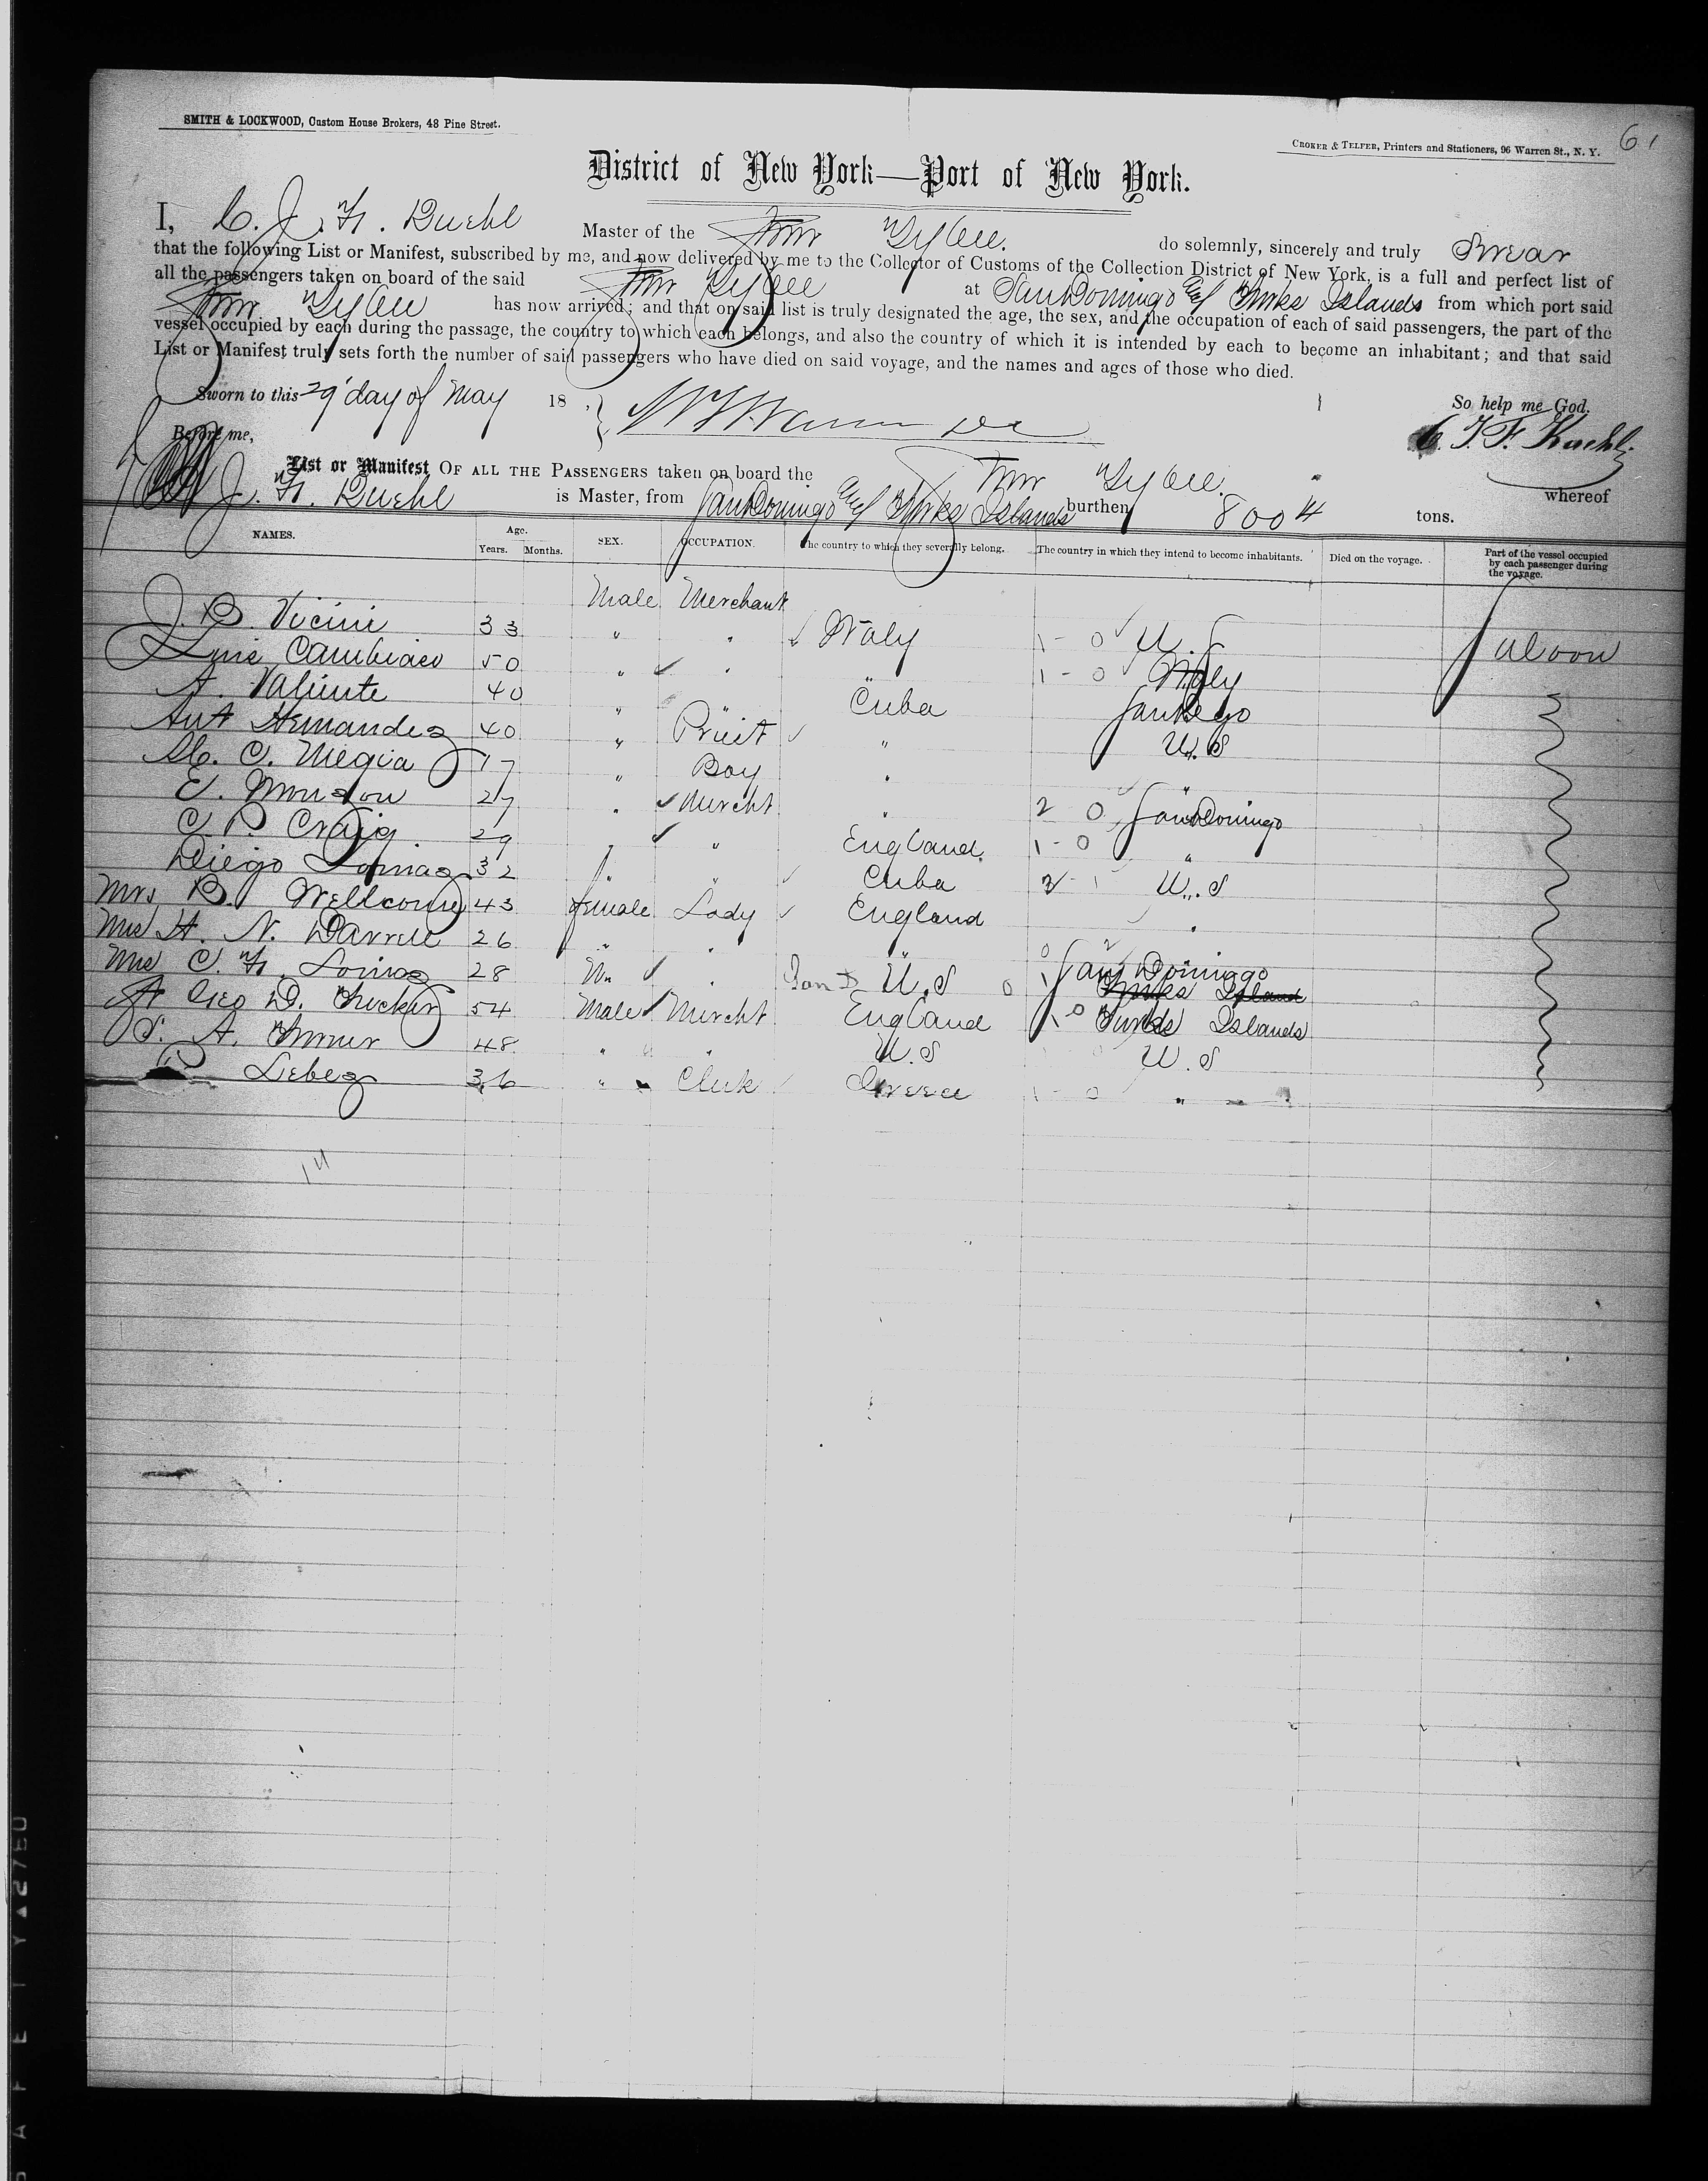 SMITH & LOCKWOOD, Custom House Brokers, 48 Pine Street.
CROKER & TELFER, Printers and Stationers, 96 Warren St., N. Y.
61
District of New York—Port of New York.
I, C. J. F. Kuehl Master of the Stmr Tybee. do solemnly, sincerely and truly Swear
that the following List or Manifest, subscribed by me, and now delivered by me to the Collector of Customs of the Collection District of New York, is a full and perfect list of
all the passengers taken on board of the said Stmr Tybee at San Domingo and Turks Islands from which port said
Stmr Tybee has now arrived; and that on said list is truly designated the age, the sex, and the occupation of each of said passengers, the part of the
vessel occupied by each during the passage, the country to which each belongs, and also the country of which it is intended by each to become an inhabitant; and that said
List or Manifest truly sets forth the number of said passengers who have died on said voyage, and the names and ages of those who died.
Sworn to this 29' day of May 18 , So help me God.
Before me, C. J. F. Kuehl
List or Manifest OF ALL THE PASSENGERS taken on board the Stmr Tybee. whereof
J. F. Kuehl is Master, from San Domingo and Turks Islands burthen 800 4 tons.
NAMES. Age. Years. Months. SEX. OCCUPATION. The country to which they severally belong. The country in which they intend to become inhabitants. Died on the voyage. Part of the vessel occupied by each passenger during the voyage.
Male Merchant
J. B. Vicini 33 " " Italy 1-0 U.S Saloon
Luis Cambiaso 50 " " 1-0 Italy
A. Valiente 40 " " Cuba
Ant Hernandez 40 " Priest " U.S
C. Megia 17 " Boy "
E. 27 " Mercht " 2 0 San Domingo
C. P. Craig 29 " " England 1-0 "
Diego 32 " " Cuba U.S
Mrs B. Wellcome 43 female Lady England "
Mrs H. N. Darrell 26 " " "
Mrs C. F. 28 " " U.S San Domingo
Geo D. 54 Male Mercht England 1-0 Turks Islands
S. A. Turner 48 " " U.S U.S
36 " Clerk Greece 1-0 "
14